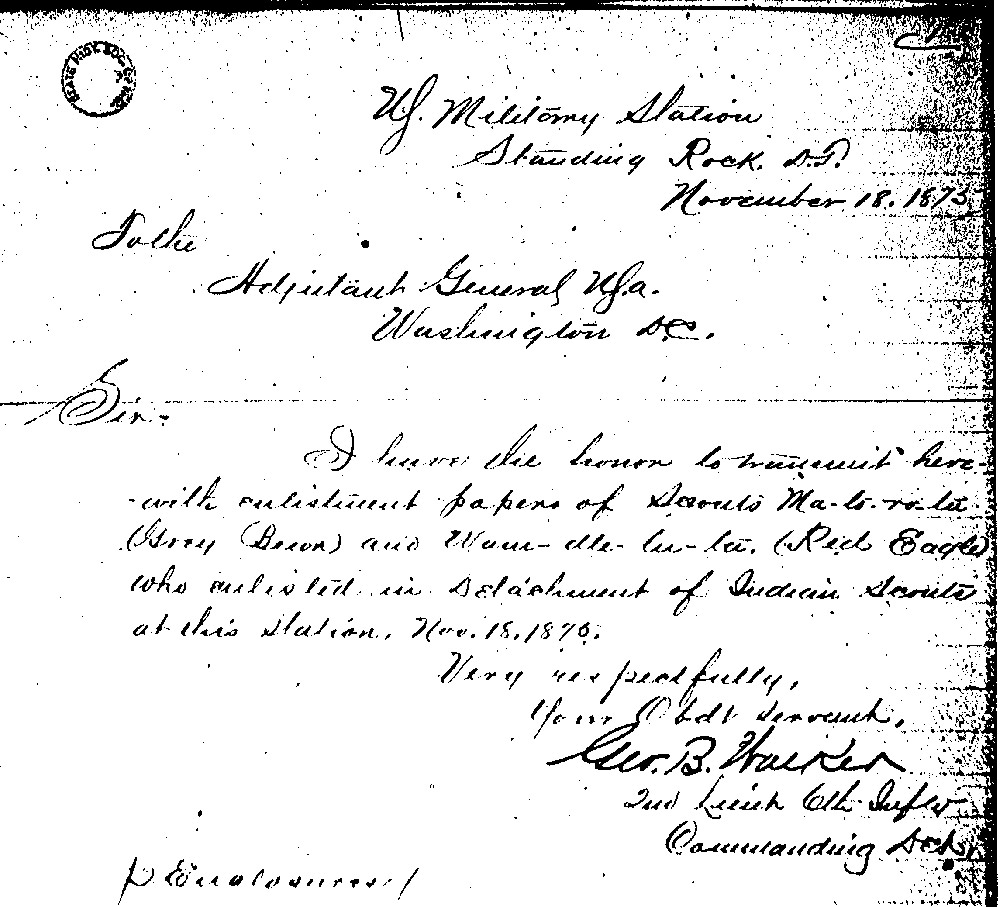 U.S. Military Station
Standing Rock. D.T.
November 18. 1875
To the
Adjutant General U.S.a.
Washington D.C.
Sir-
I have the honor to transmit here-
-with enlistment papers of Scouts Ma-to-ro-ta
(Grey Bear) and Wam-dle-lu-ta. (Red Eagle)
who enlisted in Detachment of Indian Scouts
at this station. Nov. 18. 1875.
Very respectfully,
Your Obdt Servant,
Geo. B. Walker
2nd Lieut 6th Infty
Commanding Det.
Enclosures